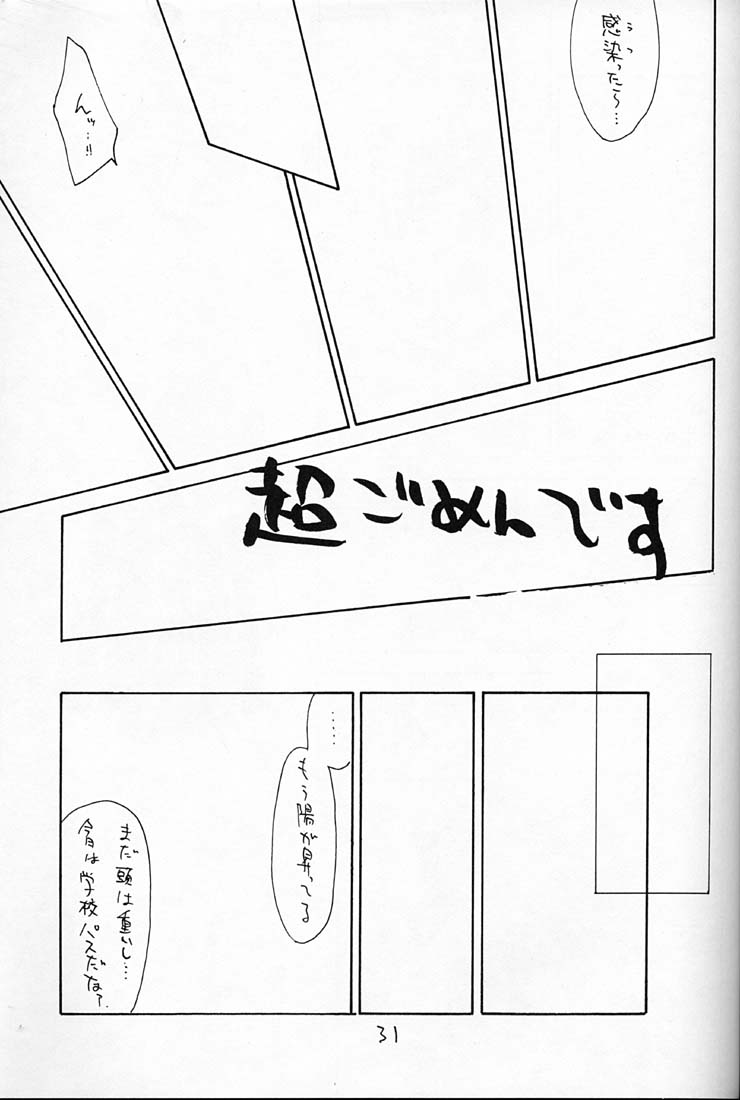 感染ったら…
うつ
んッ…!!
超ごめんです
……
もう陽が昇ってる
まだ頭は重いし…
今日は学校パスだな?
31